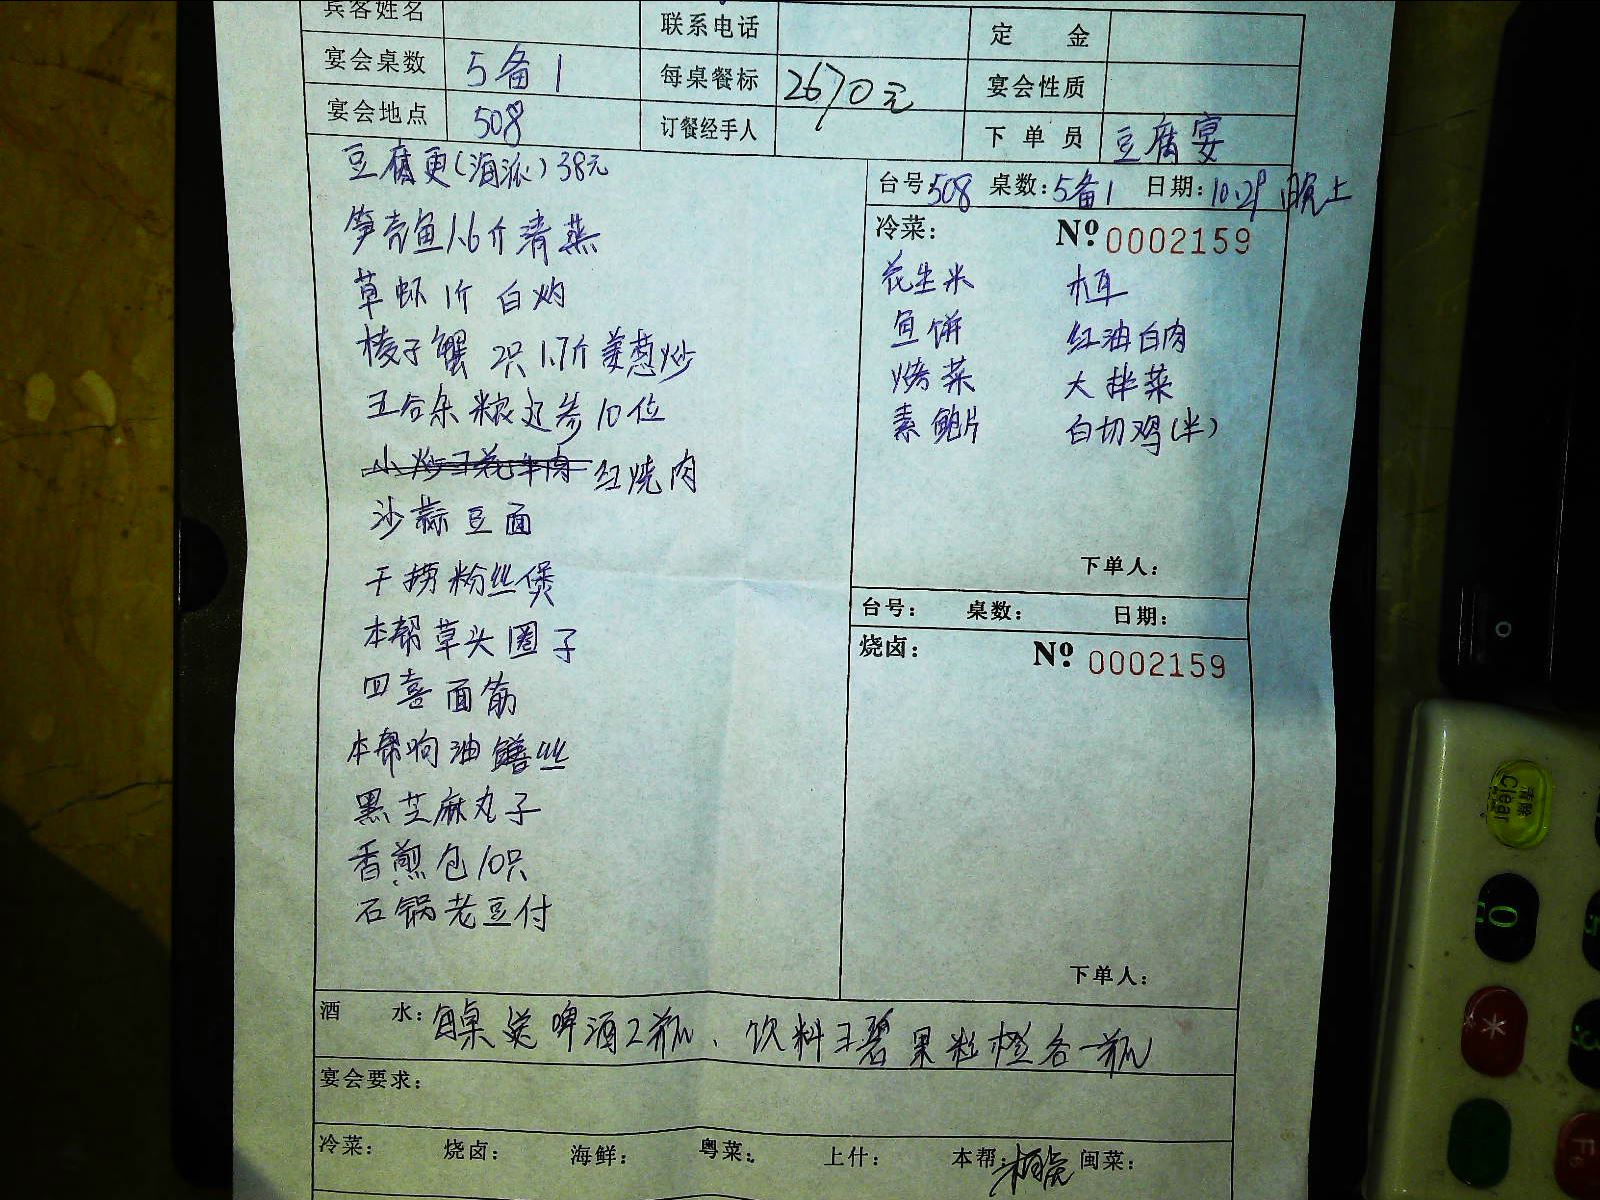 宾客姓名 联系电话 定 金
宴会桌数 5备1 每桌餐标 2670元 宴会性质
宴会地点 508 订餐经手人 下单员 豆腐宴
豆腐更(海派)38元
笋壳鱼1.6斤清蒸
草虾1斤 白灼
梭子蟹 2只 1.7斤 姜葱炒
五谷杂粮辽参10位
红烧肉
沙蒜豆面
干捞粉丝煲
本帮草头圈子
四喜面筋
本帮响油鳝丝
黑芝麻丸子
香煎包10只
石锅老豆付
台号:508 桌数:5备1 日期:10.29 晚上
冷菜: Nº 0002159
花生米 木耳
鱼饼 红油白肉
烤菜 大拌菜
素鲍片 白切鸡(半)
下单人:
台号: 桌数: 日期:
烧卤: Nº 0002159
下单人:
酒 水: 每桌送啤酒2瓶、饮料王碧果粒橙各一瓶
宴会要求:
冷菜: 烧卤: 海鲜: 粤菜: 上什: 本帮: 闽菜:
清除
Clear
0
*